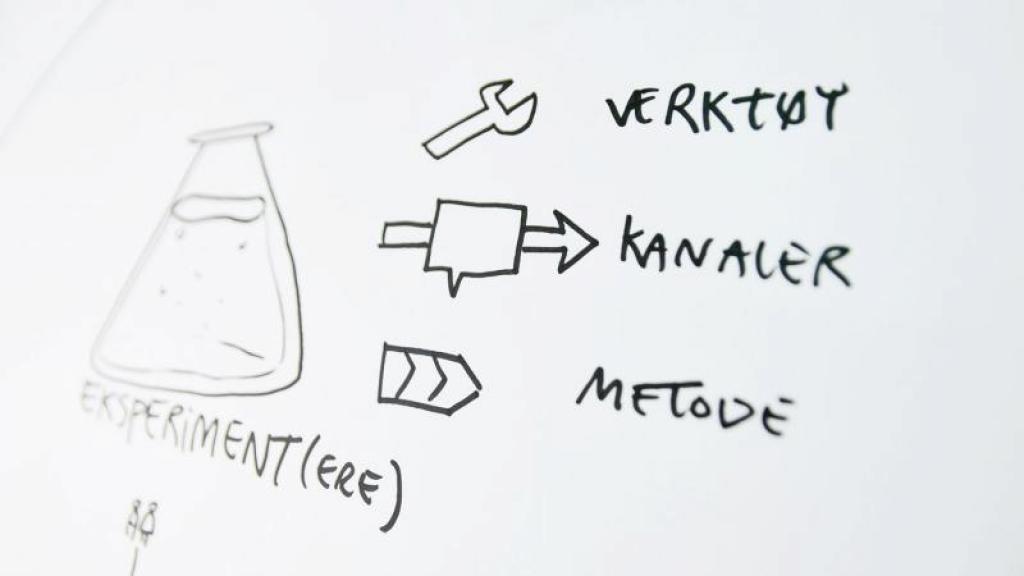 VERKTØY
KANALER
METODE
EKSPERIMENT(ERE)